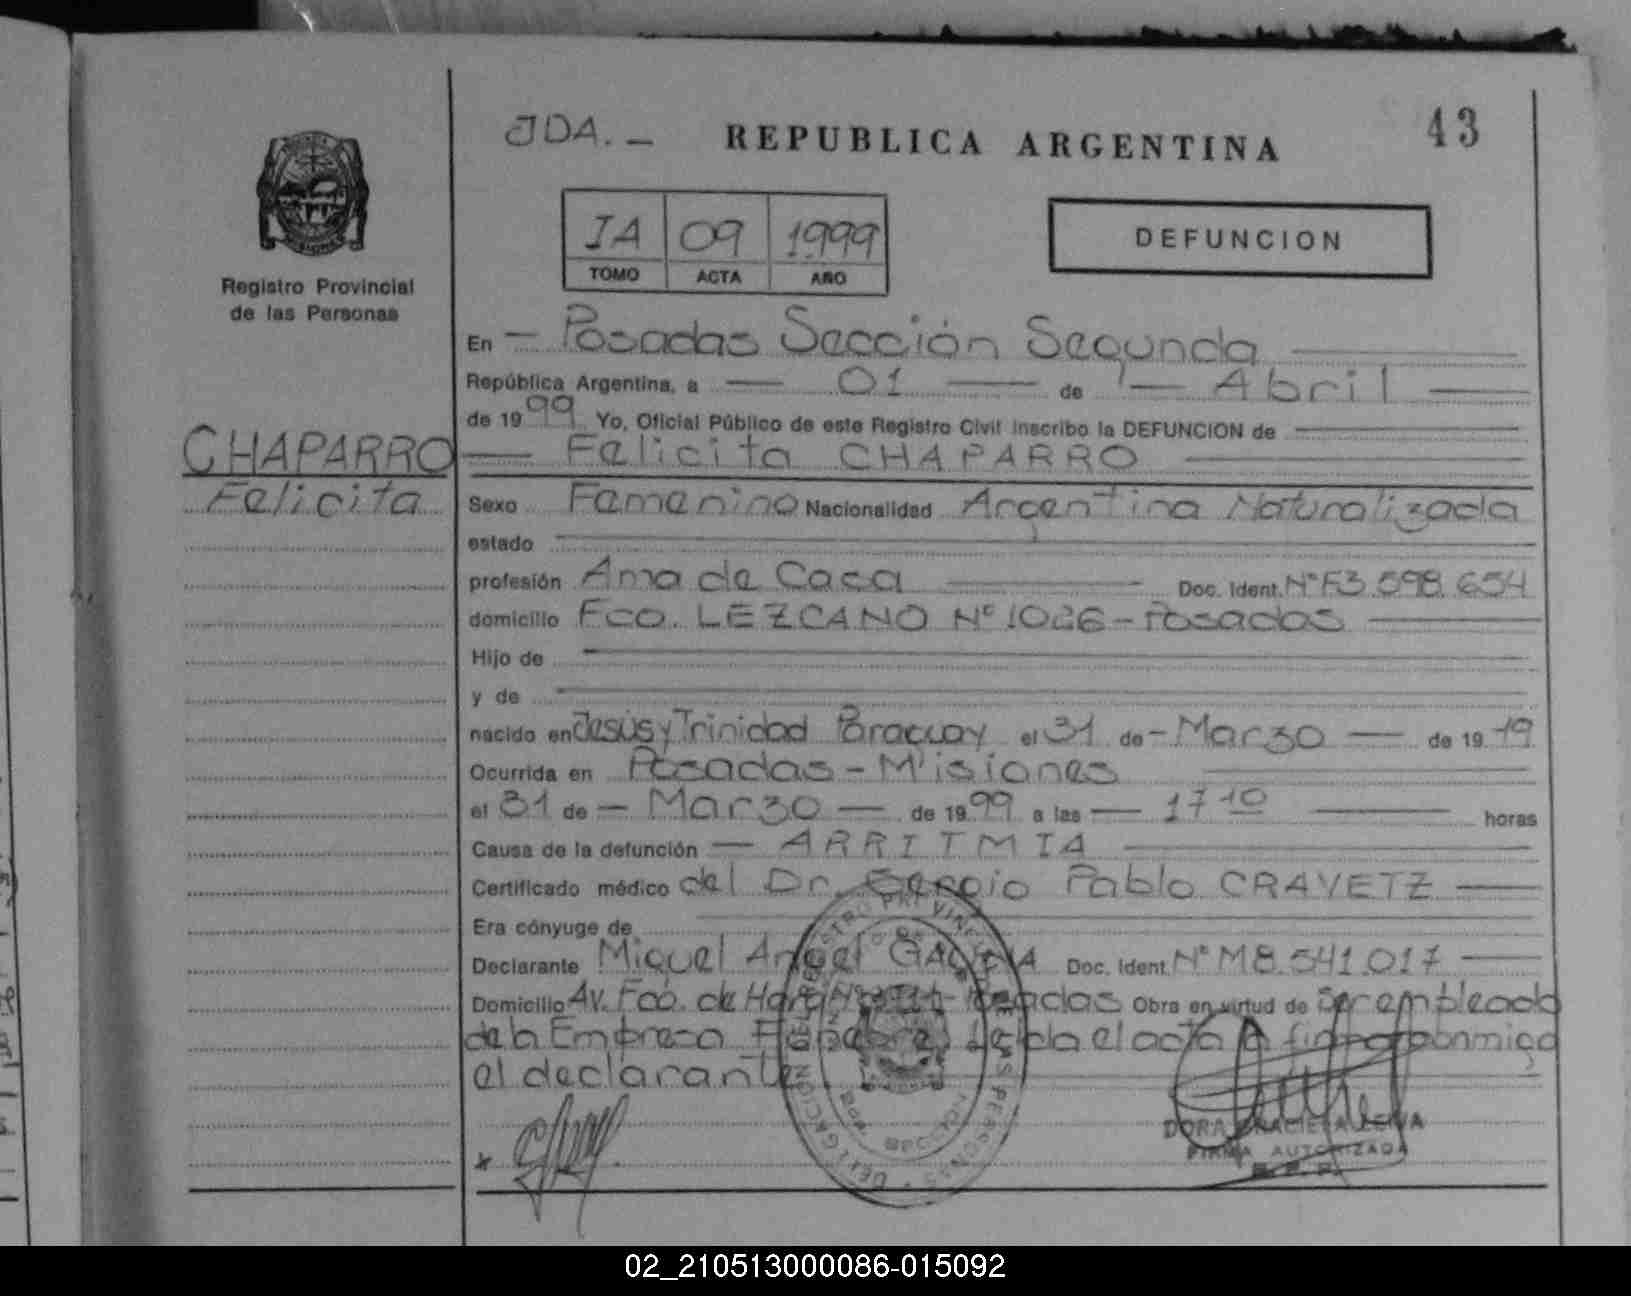 JDA. - REPUBLICA ARGENTINA 43
IA 09 1999
TOMO ACTA AÑO
DEFUNCION
Registro Provincial
de las Personas
CHAPARRO
Felicita
En - Posadas Sección Segunda
República Argentina, a - 01 - de - Abril -
de 1999 Yo, Oficial Público de este Registro Civil inscribo la DEFUNCION de -
- Felicita CHAPARRO -
Sexo Femenino Nacionalidad Argentina Naturalizada
estado
profesión Ama de Casa - Doc. Ident. N° F3.598.654
domicilio Fco. LEZCANO N° 1026 - Posadas -
Hijo de
y de
nacido en Jesús y Trinidad Paraguay el 31 de - Marzo - de 19 19
Ocurrida en Posadas - Misiones
el 31 de - Marzo - de 1999 a las - 17 10 - horas
Causa de la defunción - ARRITMIA -
Certificado médico del Dr. Sergio Pablo CRAVETZ -
Era cónyuge de
Declarante Miguel Angel Doc. Ident. N° M8.541.017 -
Domicilio Av. Fco. de Haro Posadas Obra en virtud de Ser empleado
de la Empresa Fúnebre. Leída el acta la firma conmigo
el declarante
x
REGISTRO PROVINCIAL DE LAS PERSONAS
DELEGACION
DORA GRACIELA LEIVA
FIRMA AUTORIZADA
R.P.P.
02_210513000086-015092